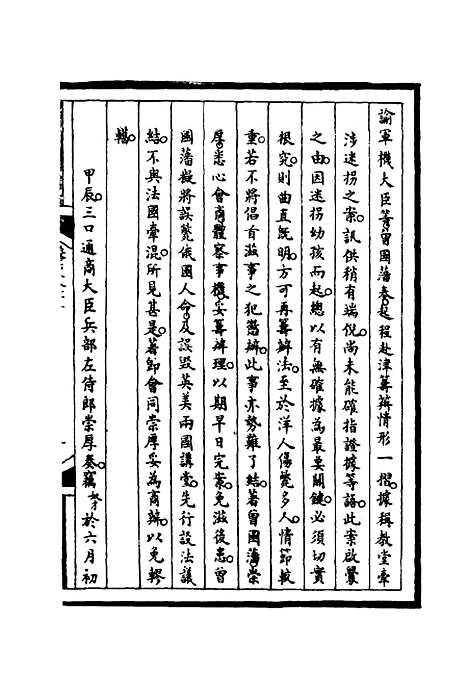 諭軍機大臣等曾國藩奏起程赴津籌辦情形一摺據稱教堂牽
涉迷拐之案訊供稍有端倪尚未能確指證據等語此案啟釁
之由因迷拐幼孩而起總以有無確據為最要關鍵必須切實
根究則曲直旣明方可再籌辦法至於洋人傷斃多人情節較
重若不將倡首滋事之犯懲辦此事亦勢難了結著曾國藩崇
厚悉心會商體察事機妥籌辦理以期早日完案免滋後患曾
國藩擬將誤斃俄國人命及誤毀英美兩國講堂先行設法議
結不與法國牽混所見甚是著卽會同崇厚妥為商辦以免轇
轕
甲辰三口通商大臣兵部左侍郎崇厚奏竊奴才於六月初